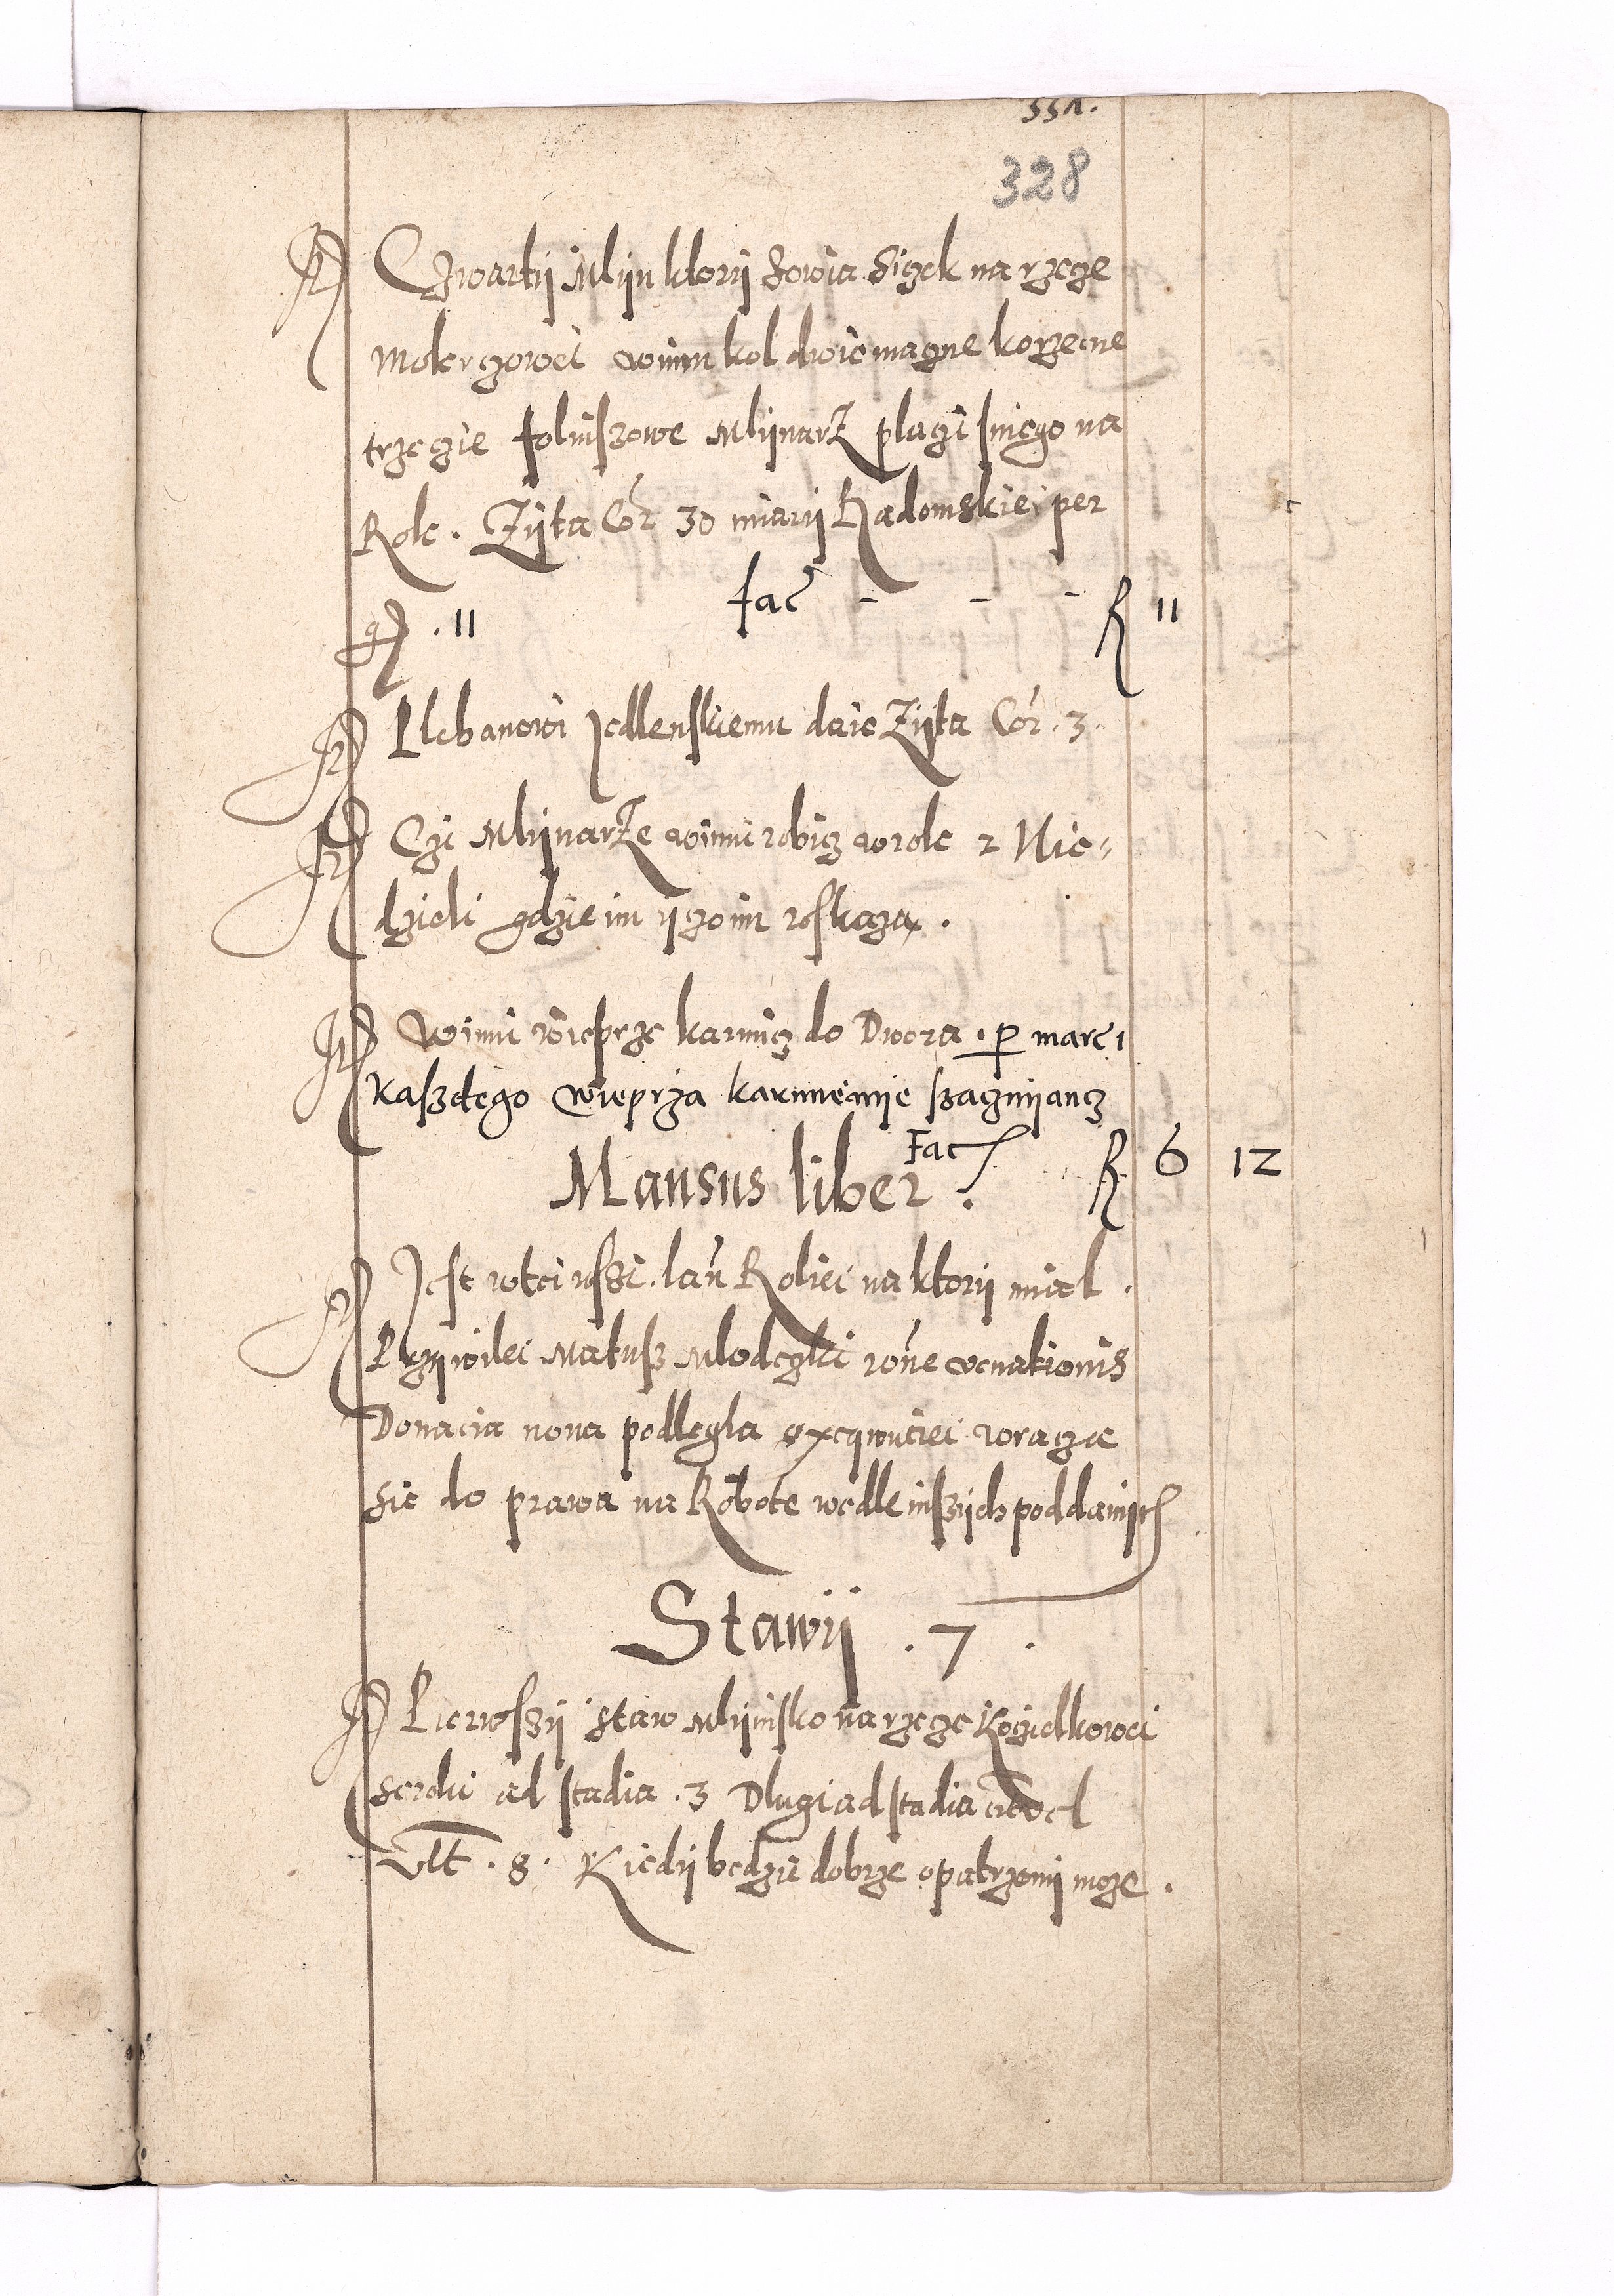 551.
328
Czwartij Mlijn ktorij zowia Sizek na rzecze
mokrzowei wnim kol dwie maczne korzecne
trzeczie foliuszowe Mlijnarz placzi sniego na
Rok. Zijta Cor 30 miarij Radomskiei per
g. 11 fac - - - R 11
Plebanowi Jedlenskiemu daie Zijta Cor. 3.
Czi Mlijnarze winni robicz wrok 2 Nie=
dzieli gdzie im ijzo im roskaza.
Winni wieprze karmicz do Dwora. p marc 1
kaszdego wieprza karmienije szaczuijancz
Fac
Mansus liber. R 6 12
Jest wtei wszi. lan Roliei na ktorij mial.
Przijwilei Matusz Mlodczki rone venationis
Donacia nova podlegla exeqwuciei wracza
sie do prawa na Robote wedle inszijch poddanijch
Stawij . 7 .
Pierwszij staw Mlijnisko na rzecze Kozielkowei
seroki ad stadia . 3 Dlugi ad stadia vel
Vlt . 8 . Kiedij bedzie dobrze opatrzonij moze .